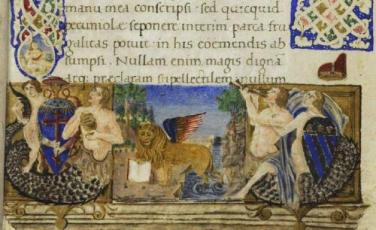 manu mea conscripsi · sed quicquid
pecuniolę seponere interim parca fru
galitas potuit in his coemendis ab
sumpsi. Nullam enim magis dignā
atq; pręclaram supellectilem nullum